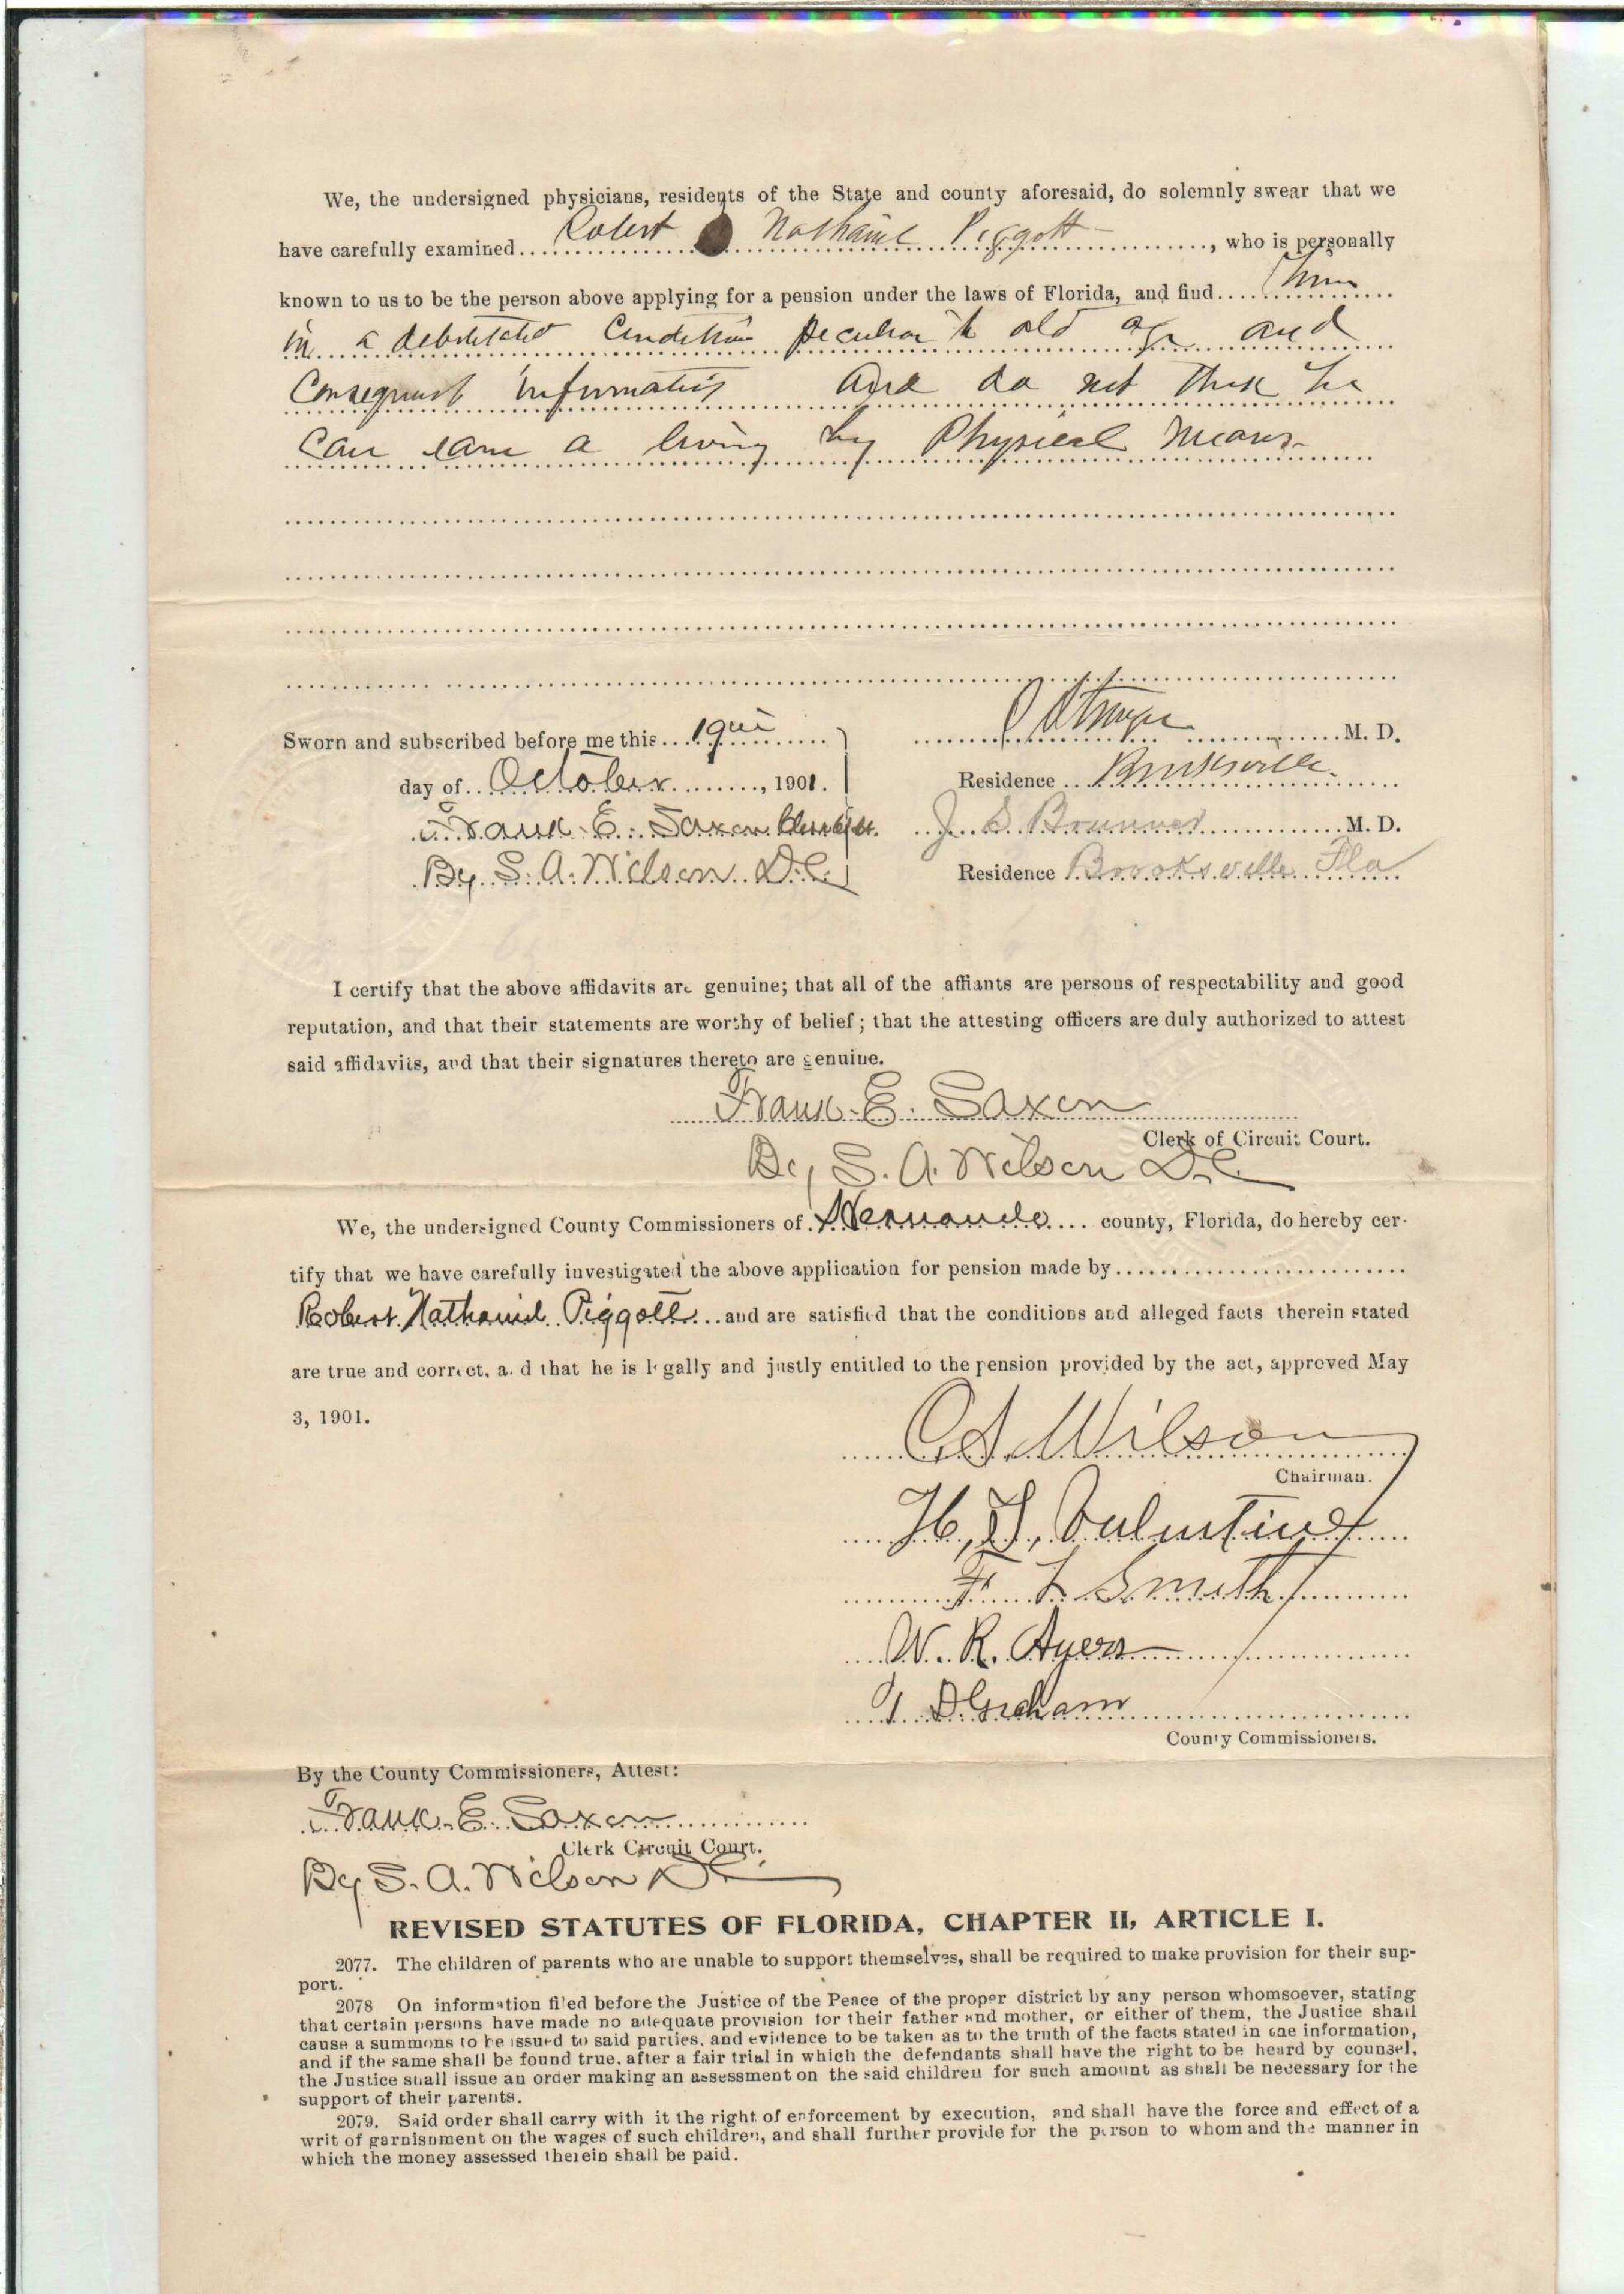 We, the undersigned physicians, residents of the State and county aforesaid, do solemnly swear that we
have carefully examined Robert Nathaniel Piggott, who is personally
known to us to be the person above applying for a pension under the laws of Florida, and find him
in a debilitated Condition peculiar to old age and
Consequent infirmaties And do not think he
Can earn a living by Physical Means
Sworn and subscribed before me this 19
M. D.
day of October, 1901.
Residence Brooksville
Frank E. Saxon Clerk
J. S. Brunner M. D.
By S. A. Wilson D.C.
Residence Brooksville Fla
I certify that the above affidavits are genuine; that all of the affiants are persons of respectability and good
reputation, and that their statements are worthy of belief; that the attesting officers are duly authorized to attest
said affidavits, and that their signatures thereto are genuine.
Frank E. Saxon
Clerk of Circuit Court.
By S. A. Wilson D.C.
We, the undersigned County Commissioners of Hernando county, Florida, do hereby cer-
tify that we have carefully investigated the above application for pension made by
Robert Nathaniel Piggott and are satisfied that the conditions and alleged facts therein stated
are true and correct, and that he is legally and justly entitled to the pension provided by the act, approved May
3, 1901.
C. S. Wilson
Chairman.
H. T. Valentine
F. L. Smith
W. R. Ayers
T. D Graham
County Commissioners.
By the County Commissioners, Attest:
Frank E. Saxon
Clerk Circuit Court.
By S. A. Wilson DC
REVISED STATUTES OF FLORIDA, CHAPTER II, ARTICLE I.
2077. The children of parents who are unable to support themselves, shall be required to make provision for their sup-
port.
2078 On information filed before the Justice of the Peace of the proper district by any person whomsoever, stating
that certain persons have made no adequate provision for their father and mother, or either of them, the Justice shall
cause a summons to be issued to said parties, and evidence to be taken as to the truth of the facts stated in the information,
and if the same shall be found true, after a fair trial in which the defendants shall have the right to be heard by counsel,
the Justice shall issue an order making an assessment on the said children for such amount as shall be necessary for the
support of their parents.
2079. Said order shall carry with it the right of enforcement by execution, and shall have the force and effect of a
writ of garnishment on the wages of such children, and shall further provide for the person to whom and the manner in
which the money assessed therein shall be paid.